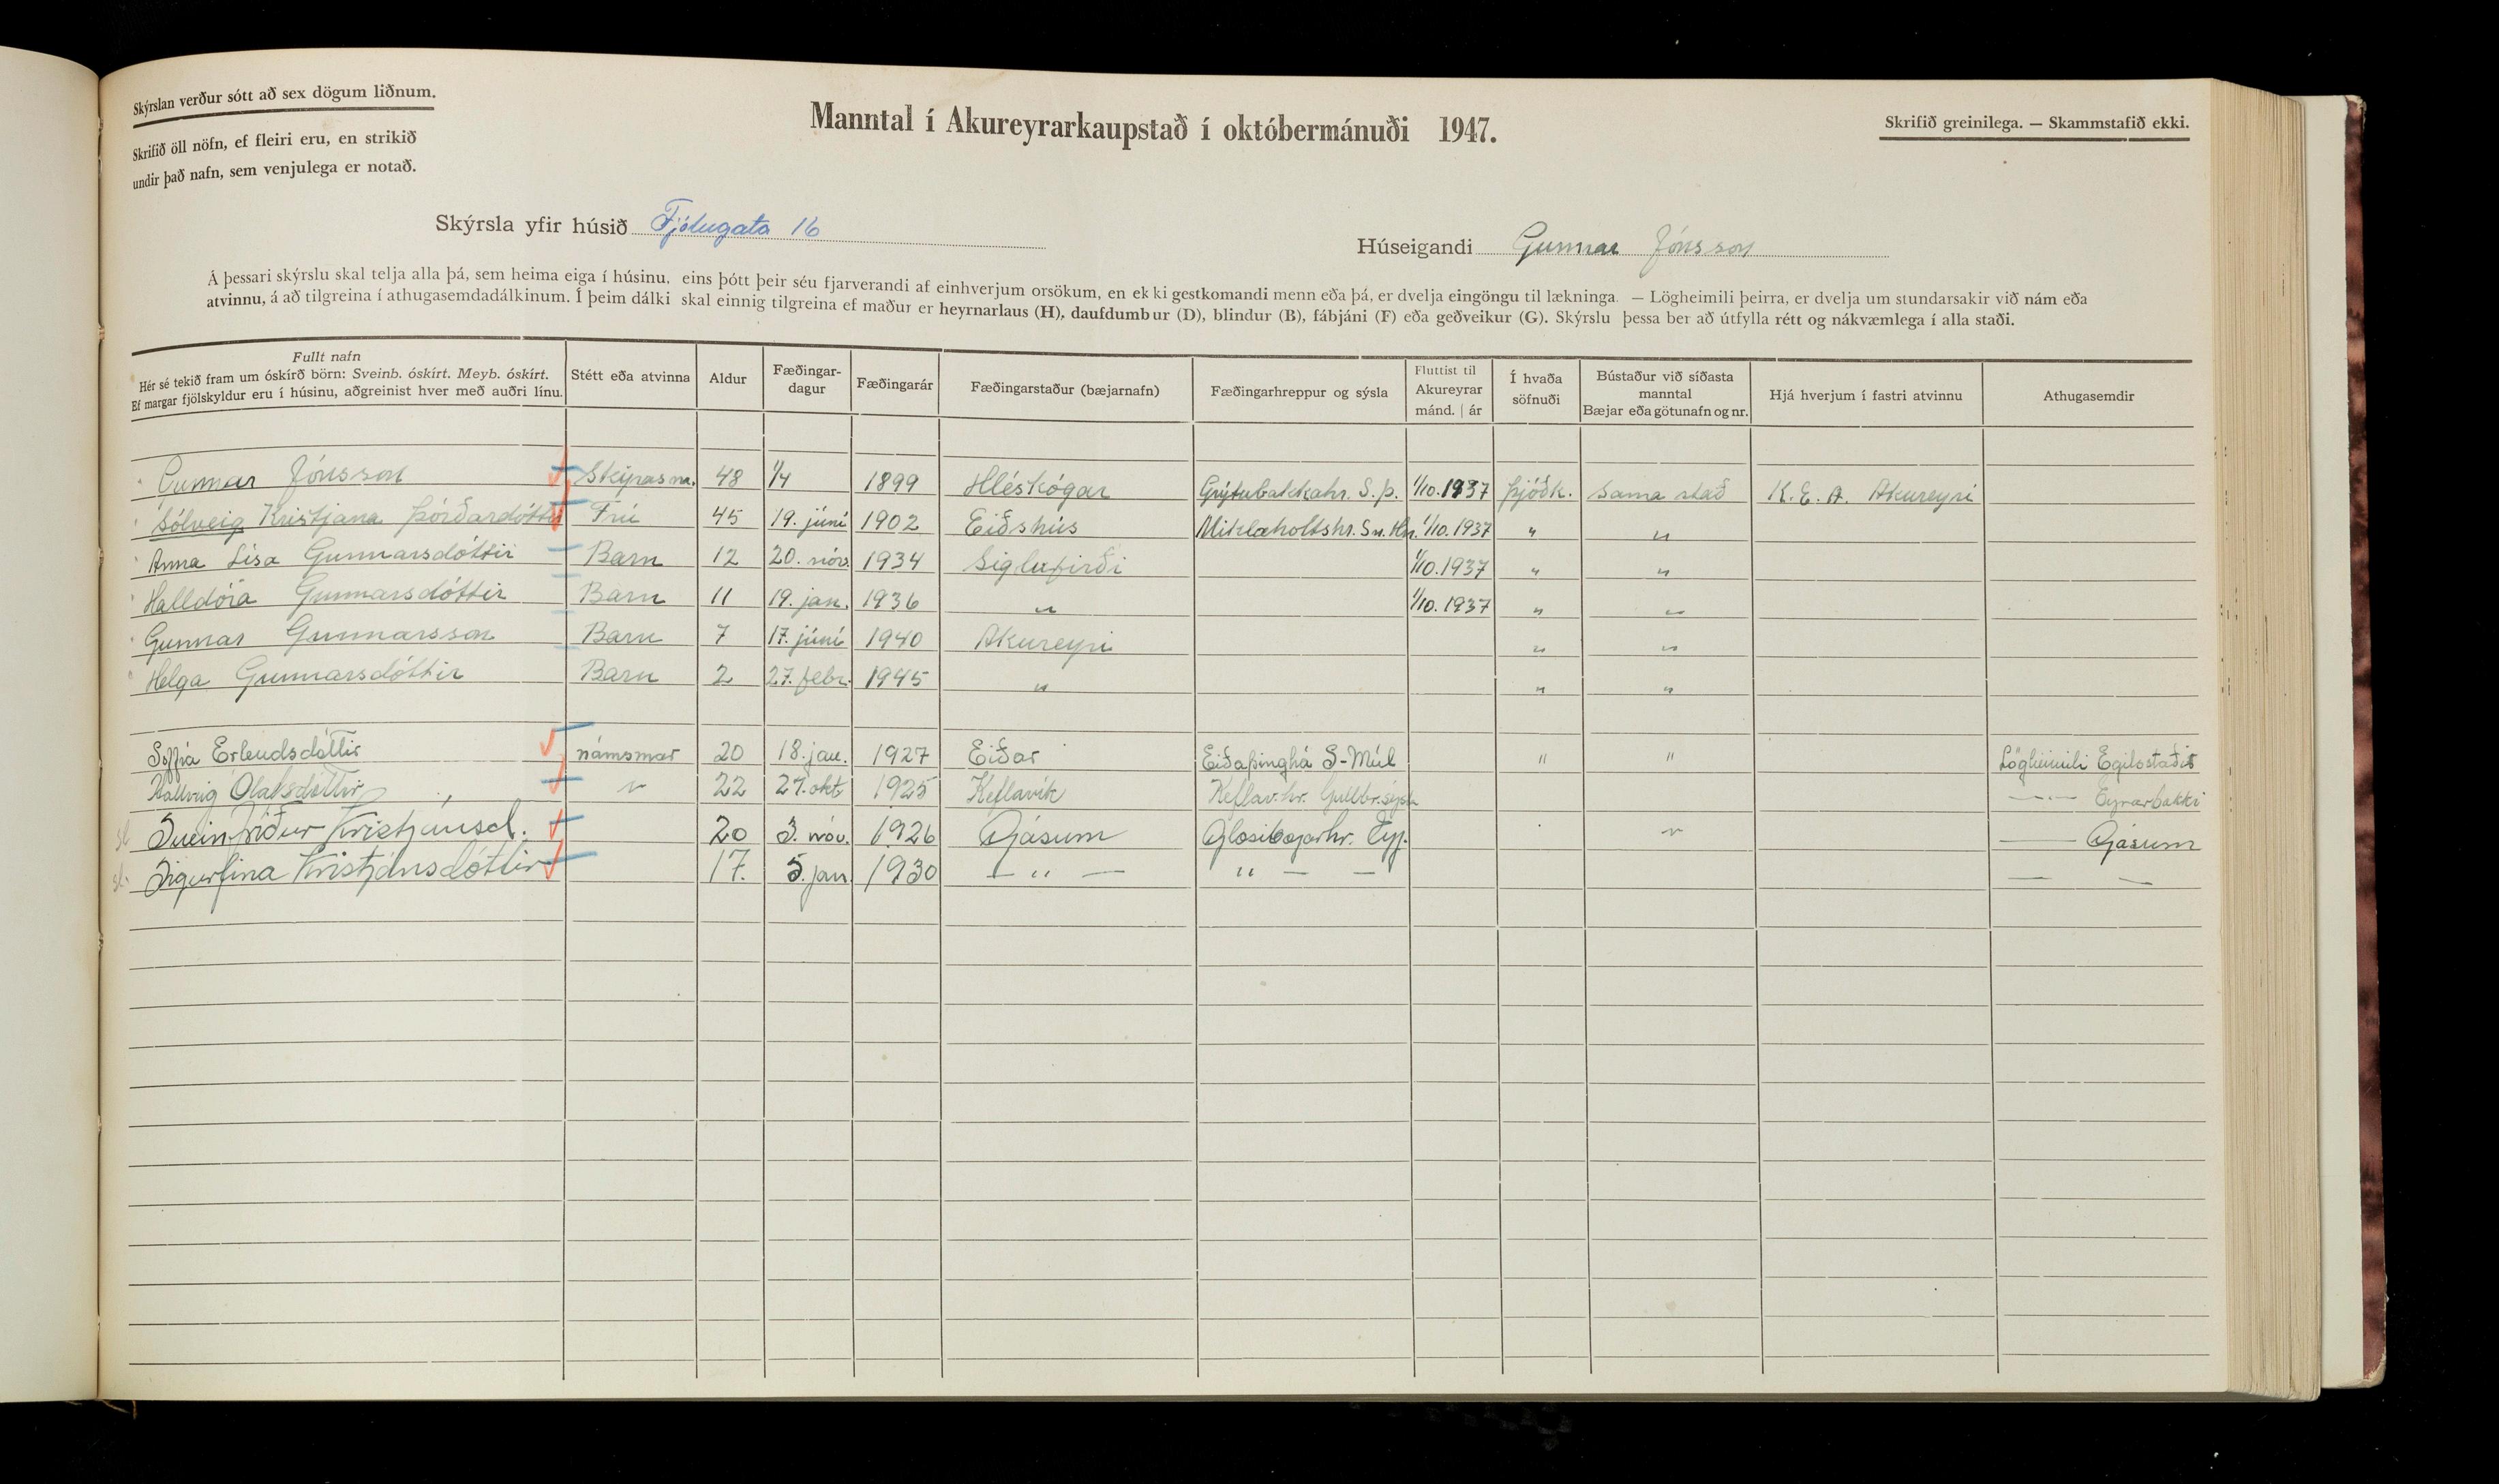 Skýrslan verður sótt að sex dögum liðnum.
Skrifið öll nöfn, ef fleiri eru, en strikið
undir það nafn, sem venjulega er notað.
Manntal í Akureyrarkaupstað í októbermánuði 1947.
Skrifið greinilega. — Skammstafið ekki.
Skýrsla yfir húsið Fjólugata 16
Húseigandi Gunnar Jónsson
Á þessari skýrslu skal telja alla þá, sem heima eiga í húsinu, eins þótt þeir séu fjarverandi af einhverjum orsökum, en ekki gestkomandi menn eða þá, er dvelja eingöngu til lækninga. — Lögheimili þeirra, er dvelja um stundarsakir við nám eða
atvinnu, á að tilgreina í athugasemdadálkinum. Í þeim dálki skal einnig tilgreina ef maður er heyrnarlaus (H), daufdumbur (D), blindur (B), fábjáni (F) eða geðveikur (G). Skýrslu þessa ber að útfylla rétt og nákvæmlega í alla staði.
Fullt nafn
Hér sé tekið fram um óskírð börn: Sveinb. óskírt. Meyb. óskírt.
Ef margar fjölskyldur eru í húsinu, aðgreinist hver með auðri línu.
Stétt eða atvinna
Aldur
Fæðingar-
dagur
Fæðingarár
Fæðingarstaður (bæjarnafn)
Fæðingarhreppur og sýsla
Fluttist til
Akureyrar
mánd. | ár
Í hvaða
söfnuði
Bústaður við síðasta
manntal
Bæjar eða götunafn og nr.
Hjá hverjum í fastri atvinnu
Athugasemdir
Gunnar Jónsson Skipasm. 48 1/4 1899 Hléskógar Grýtubakkahr. S.Þ. 1/10. 1937 Þjóðk. Sama stað K.E.A. Akureyri
Sólveig Kristjana Þórðardóttir Frú 45 19. júní 1902 Eiðshús Miklaholtshr. Sn. Hn. 1/10. 1937 " "
Anna Lísa Gunnarsdóttir Barn 12 20. nóv. 1934 Siglufirði 1/10. 1937 " "
Halldóra Gunnarsdóttir Barn 11 19. jan. 1936 " 1/10. 1937 " "
Gunnar Gunnarsson Barn 7 17. júní 1940 Akureyri " "
Helga Gunnarsdóttir Barn 2 27. febr. 1945 " " "
Soffía Erlendsdóttir námsmær 20 18. jan. 1927 Eiðar Eiðaþinghá S-Múl " " Lögheimili Egilsstaðir
Hallveig Ólafsdóttir " 22 27. okt 1925 Keflavík Keflav.hr. Gullbr.sýsl — " — Eyrarbakki
Kristjánsd. 20 3. nóv. 1926 Gásum Glæsibæjarhr. Eyj. " — Gásum
Sigurlína Kristjánsdóttir 17. 5. jan. 1930 — " — " — — — —